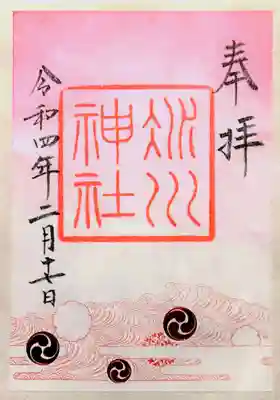 奉拝
氷川
神社
令和四年二月十七日